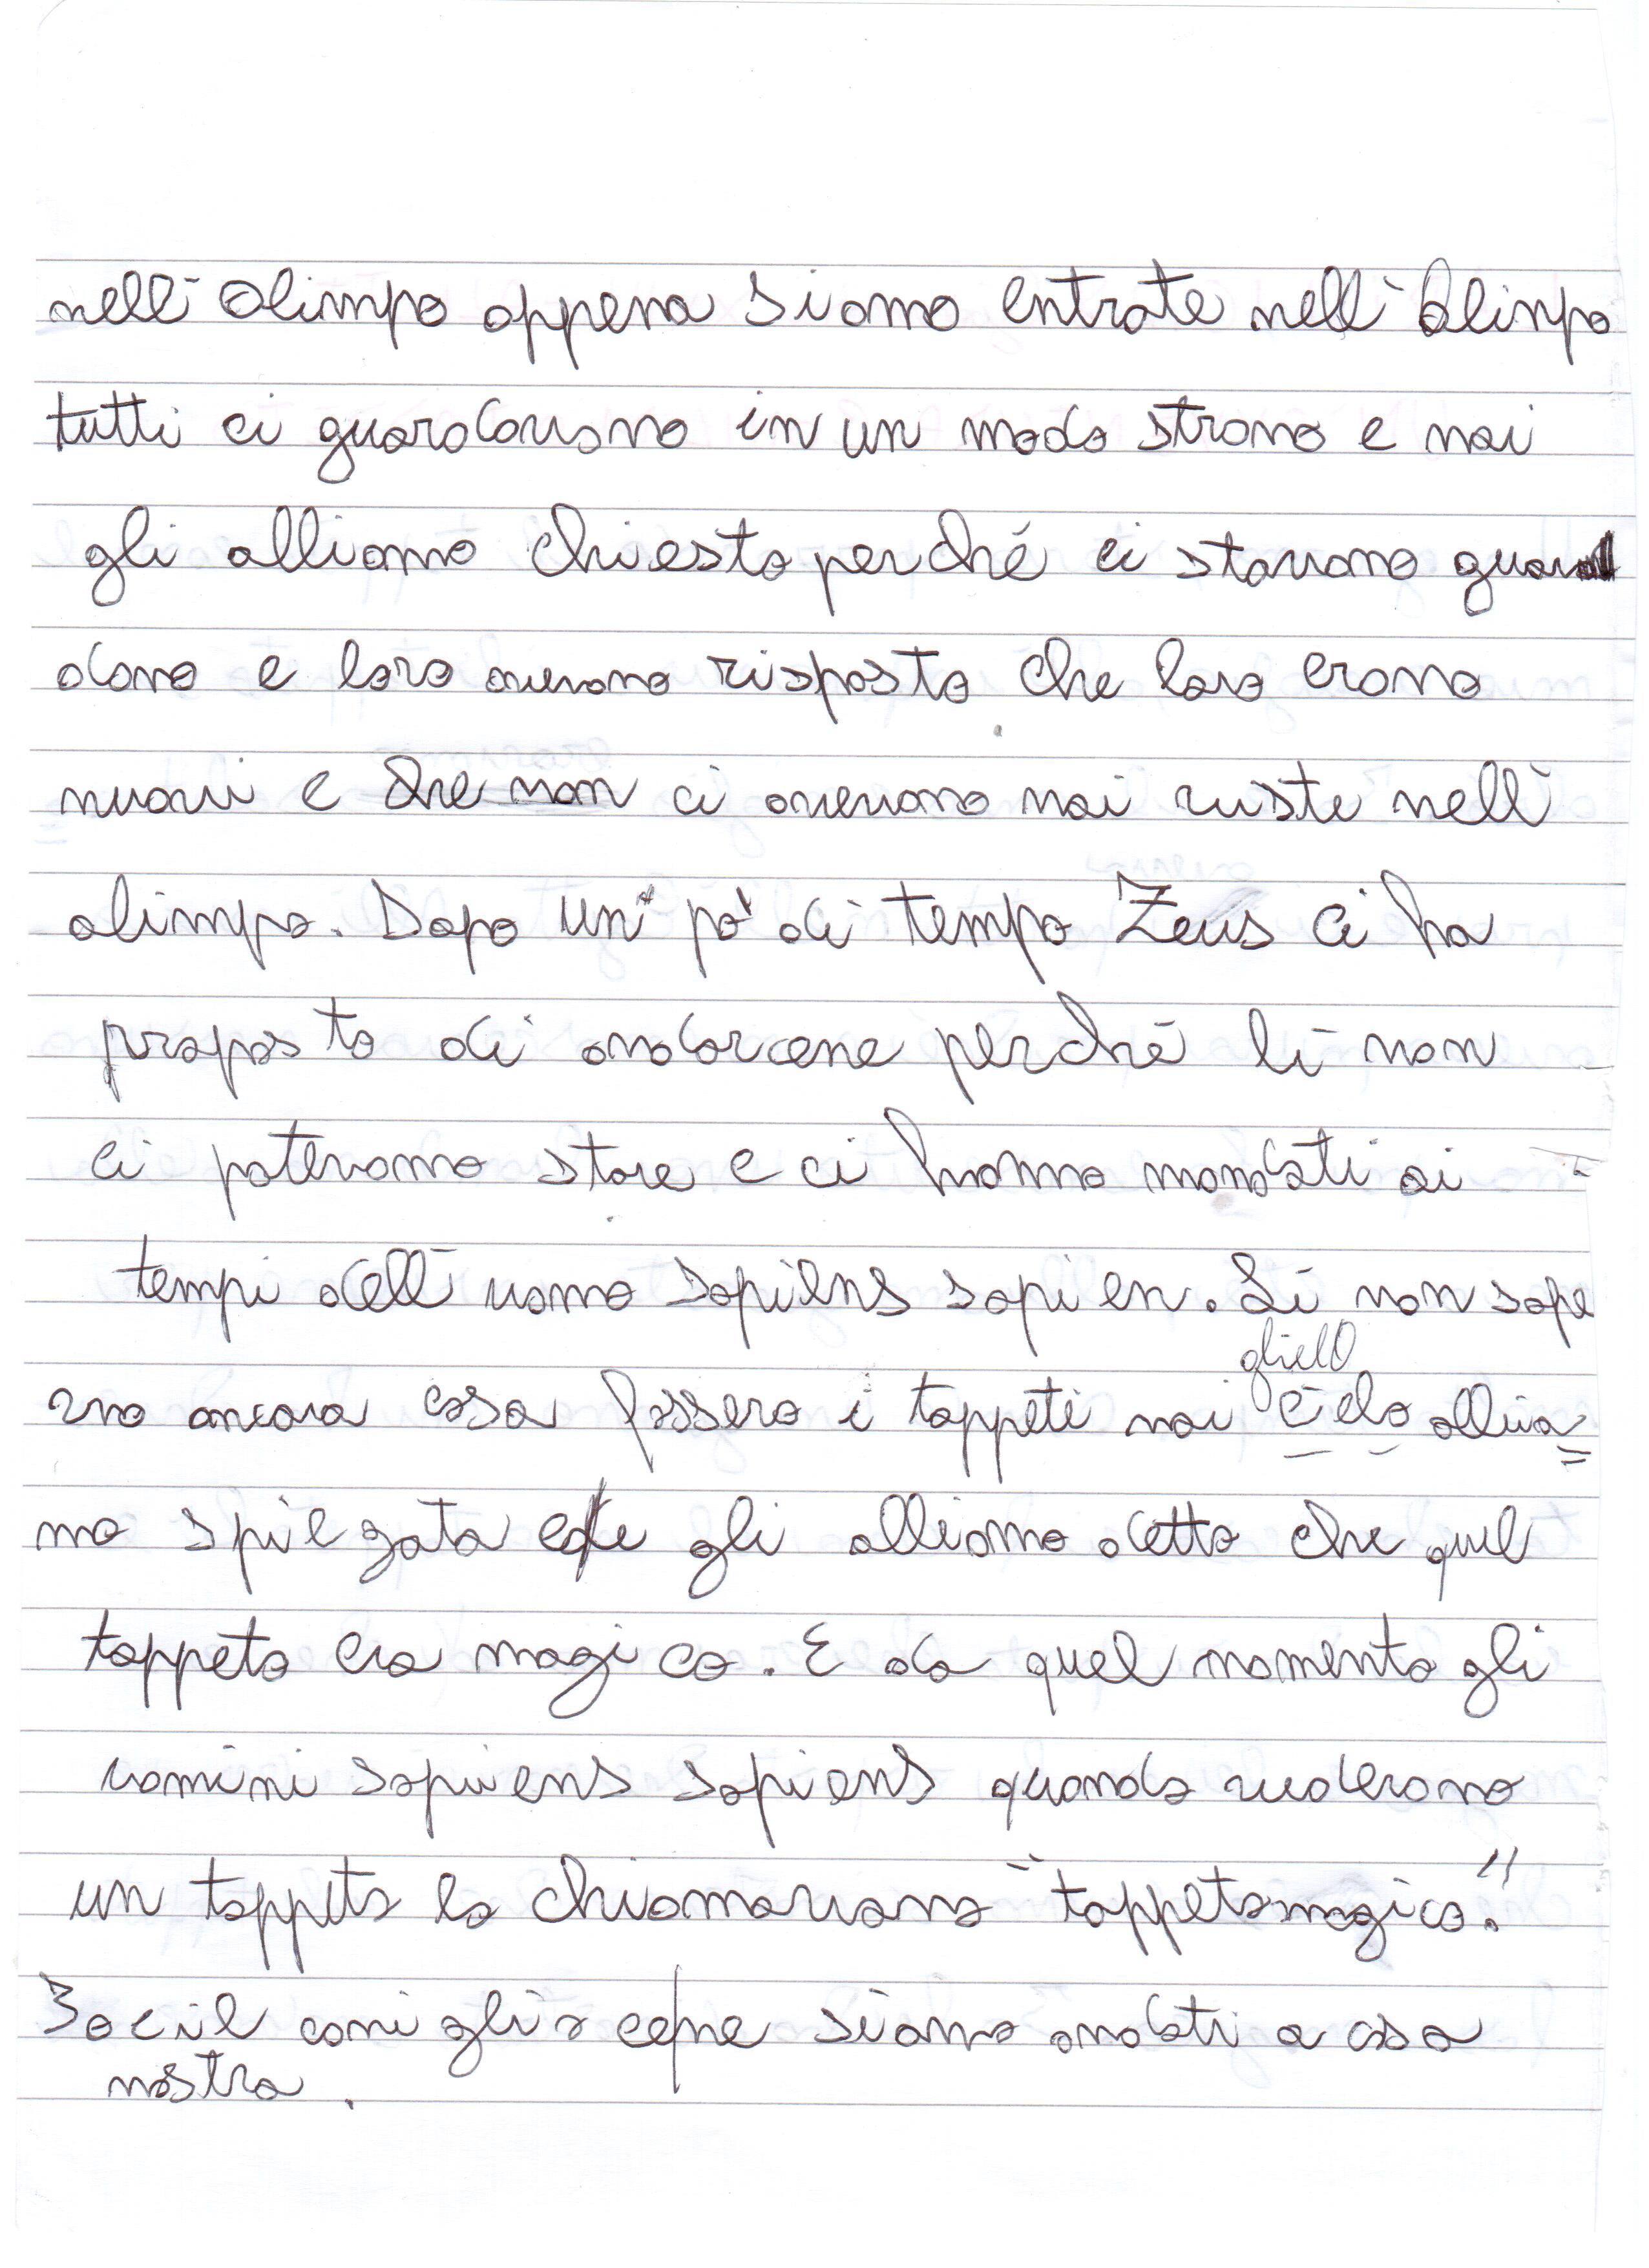 nell'Olimpo appena siamo entrate nell'Olimpo
tutti ci guardavano in un modo strano e noi
gli abbiamo chiesto perché ci stavano guar
dano e loro avevano risposto che loro erano
nuovi e che non ci avevano mai viste nell'
olimpo. Dopo un' pò di tempo Zeus ci ha
proposto di andarcene perché lì non
ci potevamo stare e ci hanno mandati ai
tempi dell'uomo sapiens sapien. Lì non sape
glielo
vno ancora cosa fossero i tappeti noi c'elo abbia
mo spiegata e gli abbiamo detto che quel
tappeto era magico. E da quel momento gli
uomini sapiens sapiens quando vederono
un tappeto lo chiamavano "tappeto magico."
Io e il coniglio ce ne siamo andati a casa
nostra.